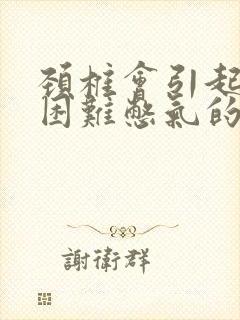 頚椎會引起
困難憋氣的
謝衛群